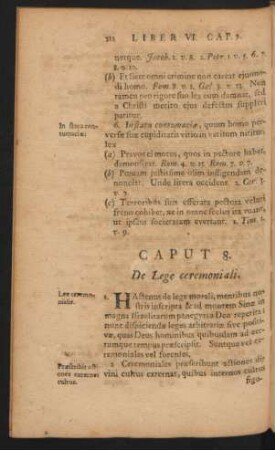 312 LIBER VI. CAP. 8.
turque. Jacob. 1. v. 8. 2. Petr. 1. v. 5. 6. 7.
8. 9. 10.
(b) Et licet omni crimine non careat ejusmodi homo. Rom. 8. v. 1. Gal. 3. v. 13. Non
tamen pro rigore suo lex eum damnat, sed
a Christi merito ejus defectus suppleri
patitur.
In statu contumaciæ:
6. In statu contumaciæ, quum homo perverse suæ cupiditatis vitium virtutum nititur,
lex
(a) Pravos ei mores, quos in pectore habet,
demonstrat. Rom. 4. v. 15. Rom. 7. v. 7.
(b) Poenam justissime olim infligendam denunciat. Unde litera occidens. 2. Cor. 3.
(c) Terroribus suis efferata pectora veluti
freno cohibet, ne in omne scelus ita ruant,
ut ipsam societatem evertant. 1. Tim. 1.
v. 9.
CAPUT 8.
De Lege ceremoniali.
Lex ceremonialis.
1. HActenus de lege morali, mentibus nostris inscripta & ad montem Sinai in
magna Israelitarum panegyri a Deo repetita:
nunc dispiciendæ leges arbitrariæ sive positivæ, quas Deus hominibus quibusdam ad certumque tempus præscripsit. Suntque eæ vel ceremoniales vel forenses.
Præscribit actiones externi cultus.
2. Ceremoniales præscribunt actiones divini cultus externas, quibus internus cultus
figu-